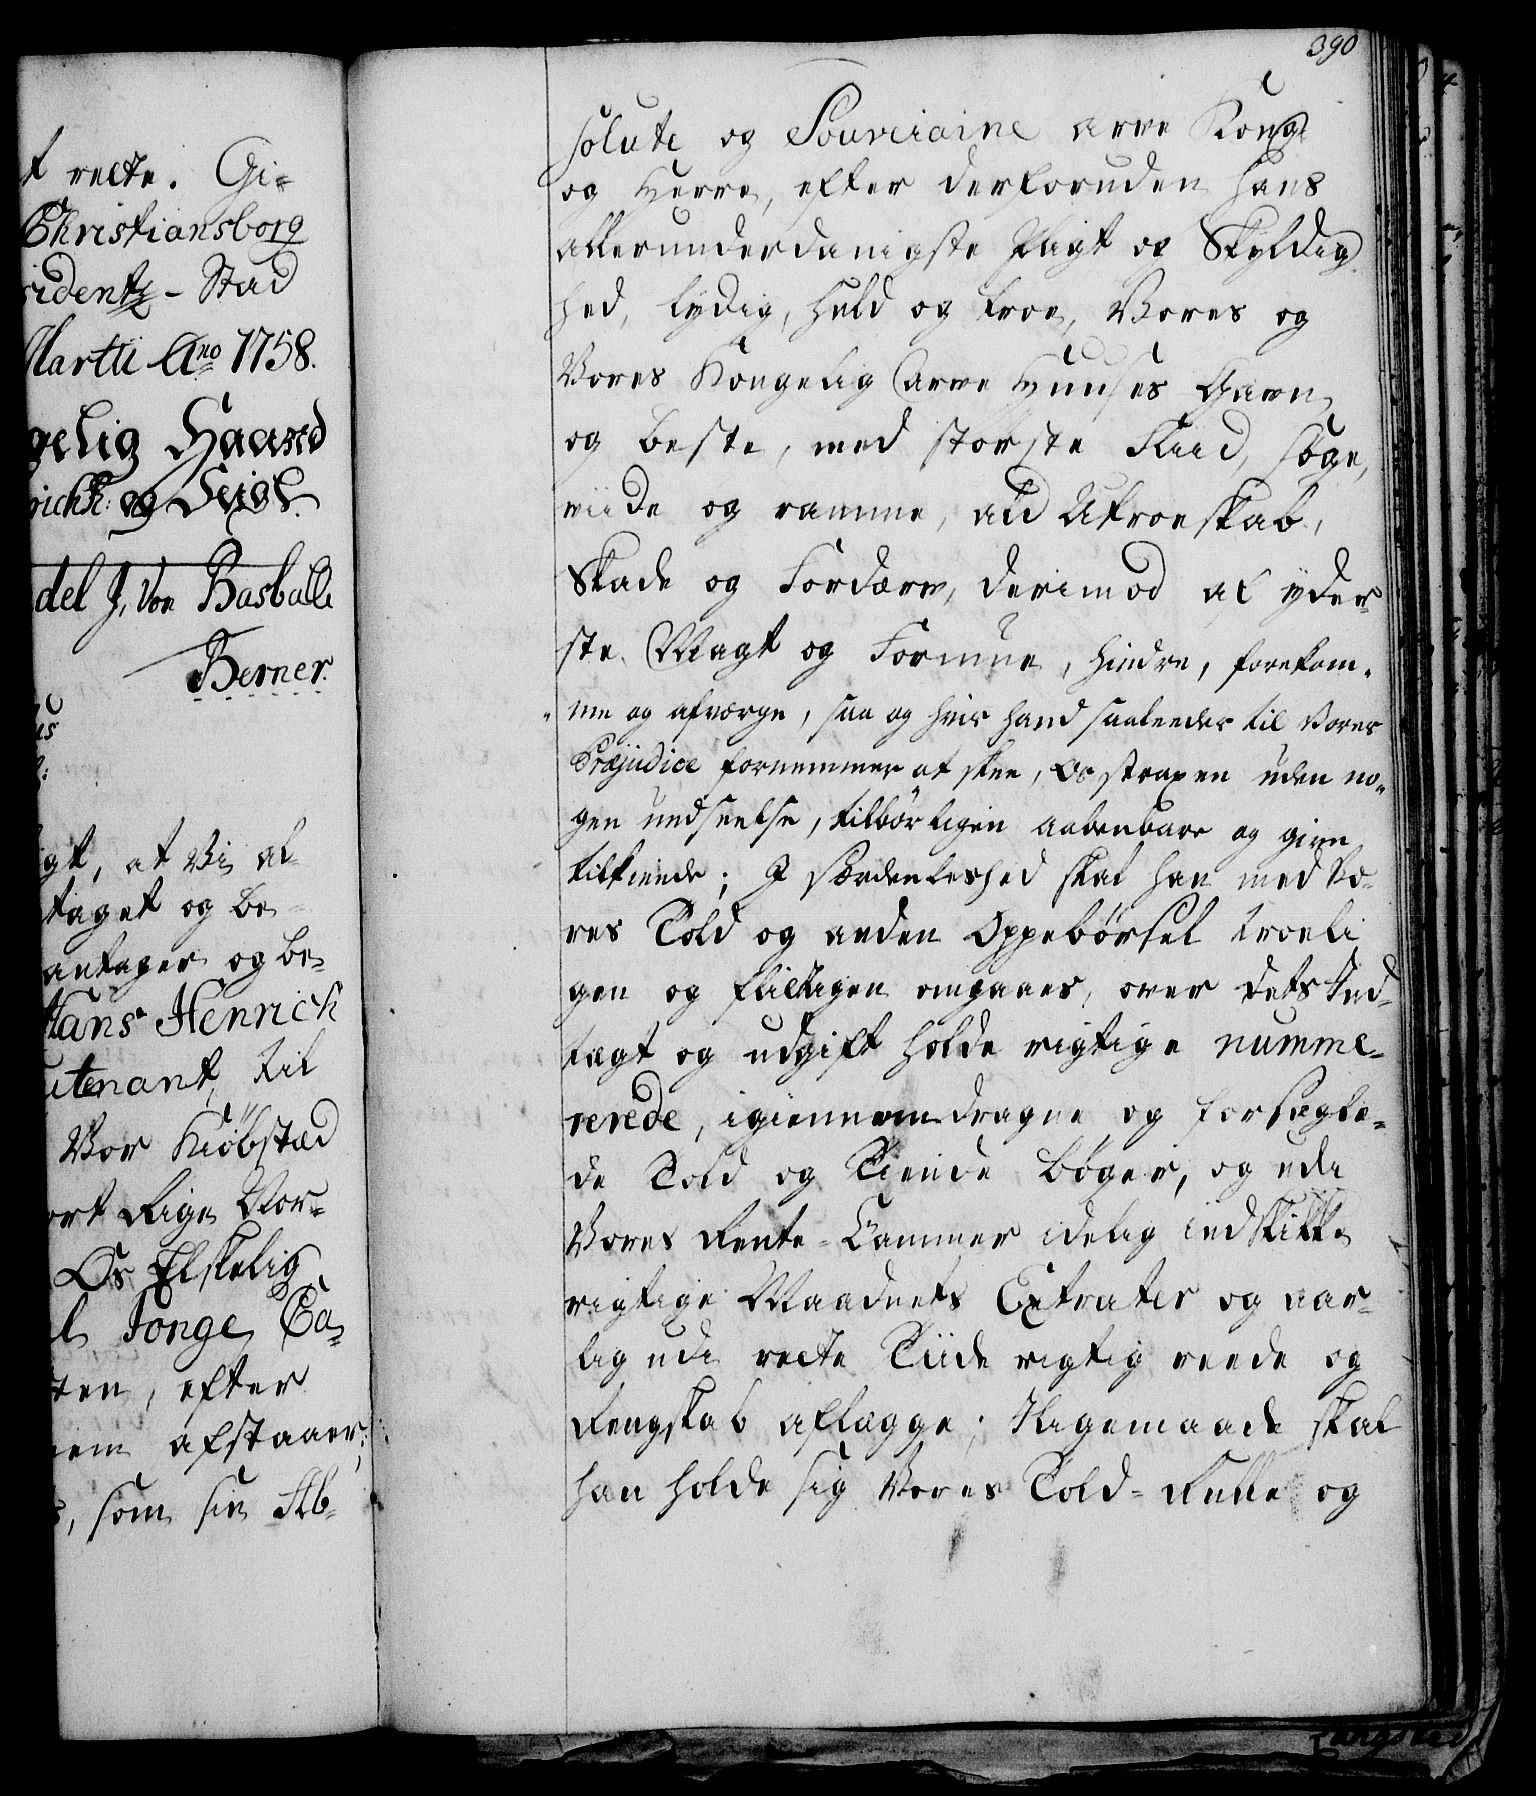 t rette. Gi-
Christiansborg
sidentz-Stad
Martii Ao 1758.
gelig Haand
richk: og Seigl.
del J, Von Basballe
Berner.
gt, at Vi af
taget og be-
antager og be-
Hans Henrich
utenant, til
Vor Kiöbstæd
ort Rige Nor-
Os Elskelig
l Tonge, Ca-
ten, efter
nem afstaaer;
som sin Ab-
390
solute og Souveraine arve Konge
og Herre, efter derforuden hans
allerunderdanigste Pligt og Skyldig
hed, lydig, huld og troe, Vores og
Vores Kongelig Arve Huuses Gavn
og beste, med största Fliid, söge,
viide og ramme, ald Utroeskab,
Skade og Fordærv, derimod af yder-
ste Magt og Formue, hindre, forekom-
me og afværge, saa og hvis hand saaleedes til Vores
Præjudice fornemmer at skee, Os straxen uden no-
gen undseelse, tilbörligen aabenbare og give
tilkiende; I særdeeleshed skal han med Vo-
res Told og anden Oppebörsel troeli
gen og flittigen omgaaes, over dets Ind-
tægt og udgift holde rigtige numme-
rerede, igiennemdragne og forsegle-
de Told og Tiende böger, og udi
Vores Rente-Cammer idelig indskikke
rigtige Maanets Extracter og aar-
lig udi rette Tiide rigtig reede og
Rengskab aflægge; Iligemaade skal
han holde sig Vores Told-Rulle og